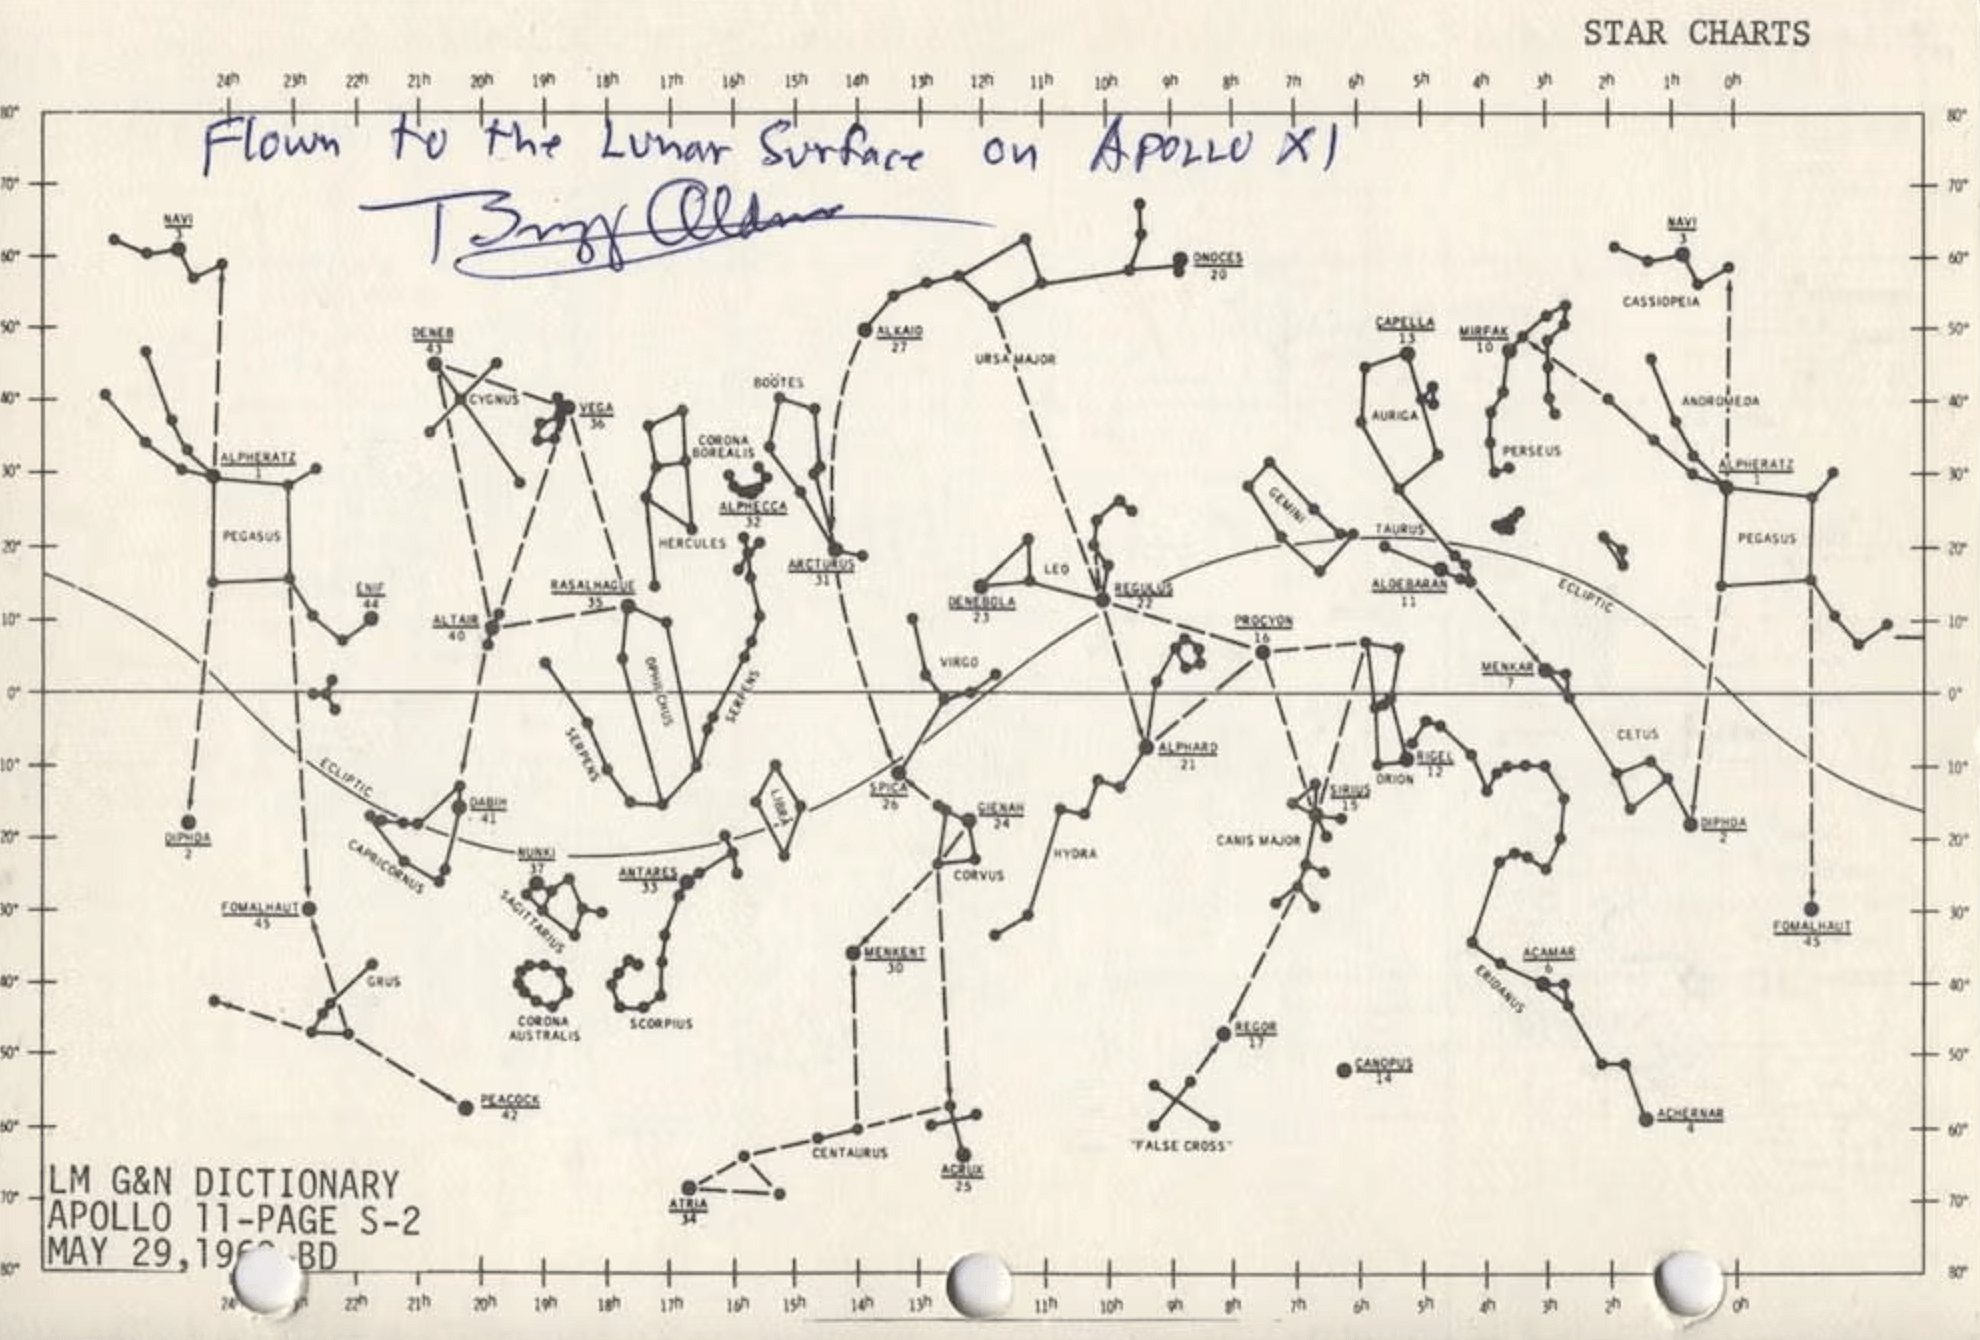 STAR CHARTS
24h 23h 22h 21h 20h 19h 18h 17h 16h 15h 14h 13h 12h 11h 10h 9h 8h 7h 6h 5h 4h 3h 2h 1h 0h
80° 80°
Flown to the Lunar Surface on APOLLO XI
70° 70°
Buzz Aldrin
NAVI
3
NAVI
3
60° 60°
DNOCES
20
CASSIOPEIA
50° 50°
DENEB
43
ALKAID
27
URSA MAJOR
CAPELLA
13
MIRFAK
10
BOÖTES
40° 40°
CYGNUS
VEGA
36
AURIGA
ANDROMEDA
CORONA
BOREALIS
PERSEUS
30° 30°
ALPHERATZ
1
ALPHERATZ
1
ALPHECCA
32
GEMINI
PEGASUS
HERCULES
TAURUS
PEGASUS
20° 20°
ARCTURUS
31
LEO
RASALHAGUE
35
ENIF
44
DENEBOLA
23
REGULUS
22
ALDEBARAN
11
ECLIPTIC
10° 10°
ALTAIR
40
PROCYON
16
VIRGO
MENKAR
7
OPHIUCHUS
SERPENS
0° 0°
SERPENS
CETUS
ALPHARD
21
RIGEL
12
ORION
10° 10°
ECLIPTIC
SPICA
26
SIRIUS
15
DABIH
41
LIBRA
GIENAH
24
DIPHDA
2
DIPHDA
2
20° 20°
CAPRICORNUS
NUNKI
37
ANTARES
33
CANIS MAJOR
HYDRA
CORVUS
SAGITTARIUS
30° 30°
FOMALHAUT
45
FOMALHAUT
45
MENKENT
30
ACAMAR
6
ERIDANUS
GRUS
40° 40°
CORONA
AUSTRALIS
SCORPIUS
REGOR
17
50° 50°
CANOPUS
14
PEACOCK
42
ACHERNAR
4
60° 60°
"FALSE CROSS"
CENTAURUS
ACRUX
25
70° 70°
ATRIA
34
LM G&N DICTIONARY
APOLLO 11-PAGE S-2
MAY 29,196 BD
80° 80°
24 22h 21h 20h 19h 18h 17h 16h 15h 14h 13h 11h 10h 9h 8h 7h 6h 5h 4h 3h 2h 0h